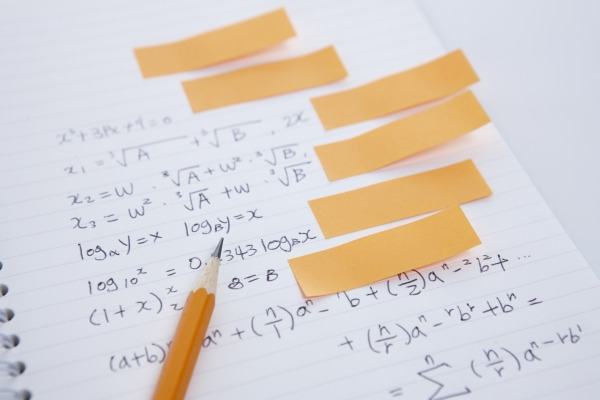 x³+3Px+q=0
x₁ = ³√A + ³√B , 2x
x₂ = w · ³√A + w² · ³√B,
x₃ = w² · ³√A + w · ³√B
logₐy=x log_B y=x
log 10ˣ = 0. 343 log_B x
(1+x)^x/2 &=B
(a+b) aⁿ + (n/1)aⁿ⁻ b + (n/2)aⁿ⁻²b²+ ...
+ (n/r)aⁿ⁻ʳbʳ+bⁿ =
= Σⁿ (n/r)aⁿ⁻ʳbʳ